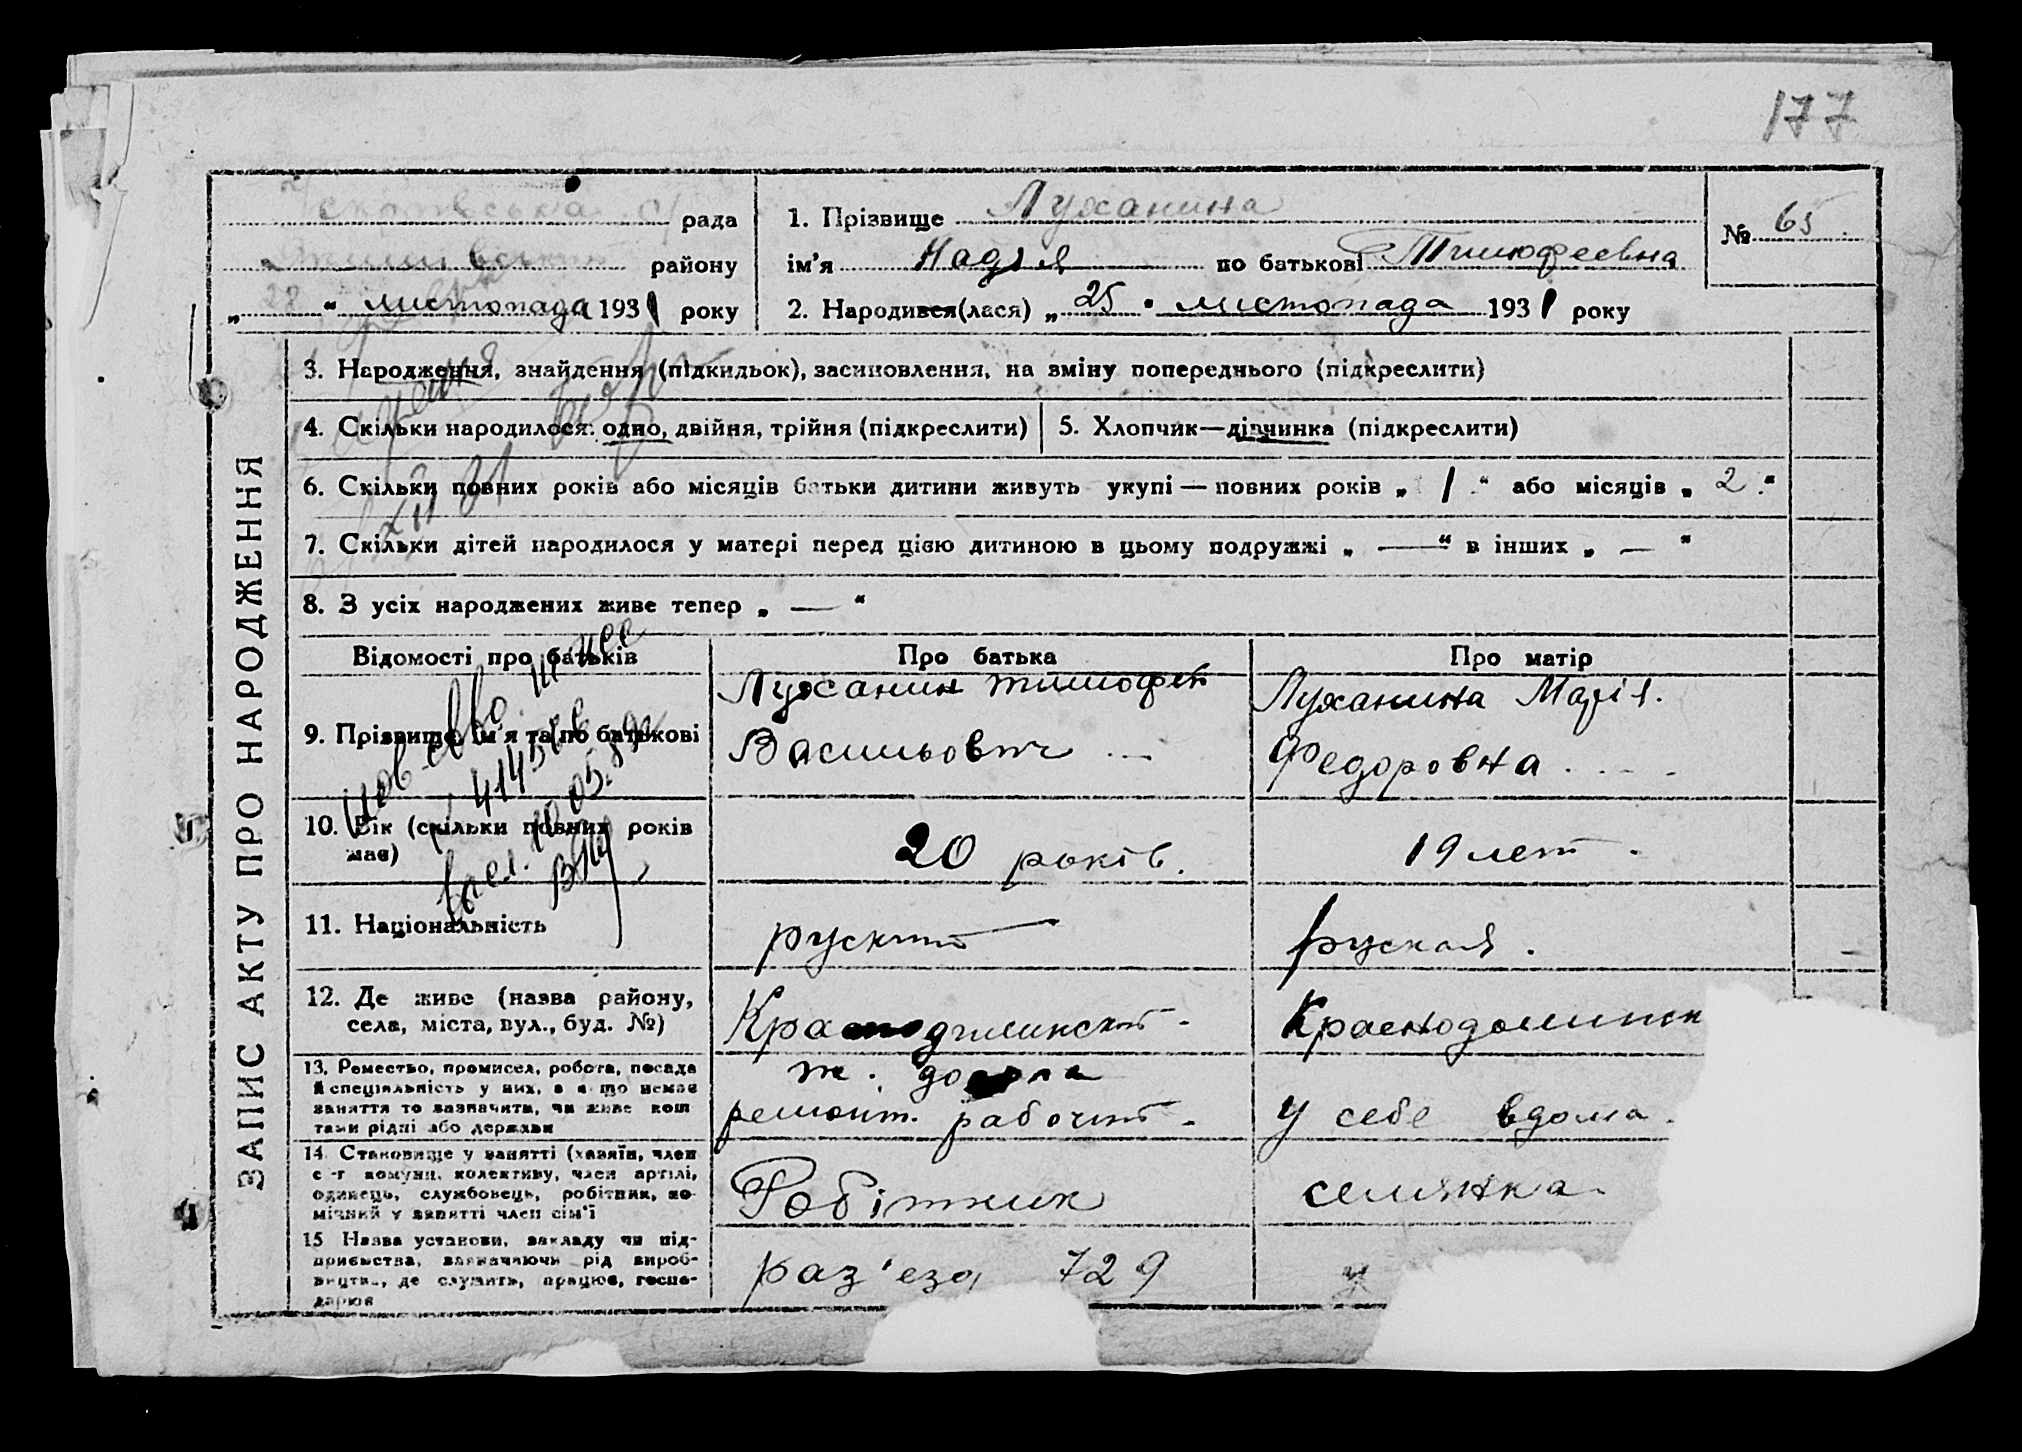 177
рада
району
28 " листопада 1931 року
1. Прізвище Луханина
ім'я Надія по батькові Тимофеевна
2. Народився(лася) „ 25 " листопада 1931 року
№ 65
ЗАПИС АКТУ ПРО НАРОДЖЕННЯ
3. Народження, знайдення (підкидьок), засиновлення, на зміну попереднього (підкреслити)
4. Скільки народилося: одно, двійня, трійня (підкреслити)
5. Хлопчик—дівчинка (підкреслити)
6. Скільки повних років або місяців батьки дитини живуть укупі — повних років „ 1 " або місяців „ 2 "
7. Скільки дітей народилося у матері перед цією дитиною в цьому подружжі „ — " в інших „ — "
8. З усіх народжених живе тепер „ — "
Відомості про батьків
Про батька
Про матір
9. Прізвище, ім'я та по батькові
Луханин Тимофей
Васильович
Луханина Марія.
Федоровна
10. Вік (скільки повних років
має)
20 років.
19 лет.
11. Національність
руский
руская.
12. Де живе (назва району,
села, міста, вул., буд. №)
13. Ремество, промисел, робота, посада
й спеціяльність у них, а якщо немає
заняття то зазначити, чи живе кош
тами рідні або держави
ремонт. рабочий.
у себе вдома.
14. Становище у занятті (хазяїн, член
с-г комуни, колективу, член артілі,
одинець, службовець, робітник, по-
мічний у занятті член сім'ї
Робітник
семянка.
15 Назва установи, закладу чи під-
приємства, зазначаючи рід вироб-
ництва, де служить, працює, госпо-
дарює
раз'езд 729
у